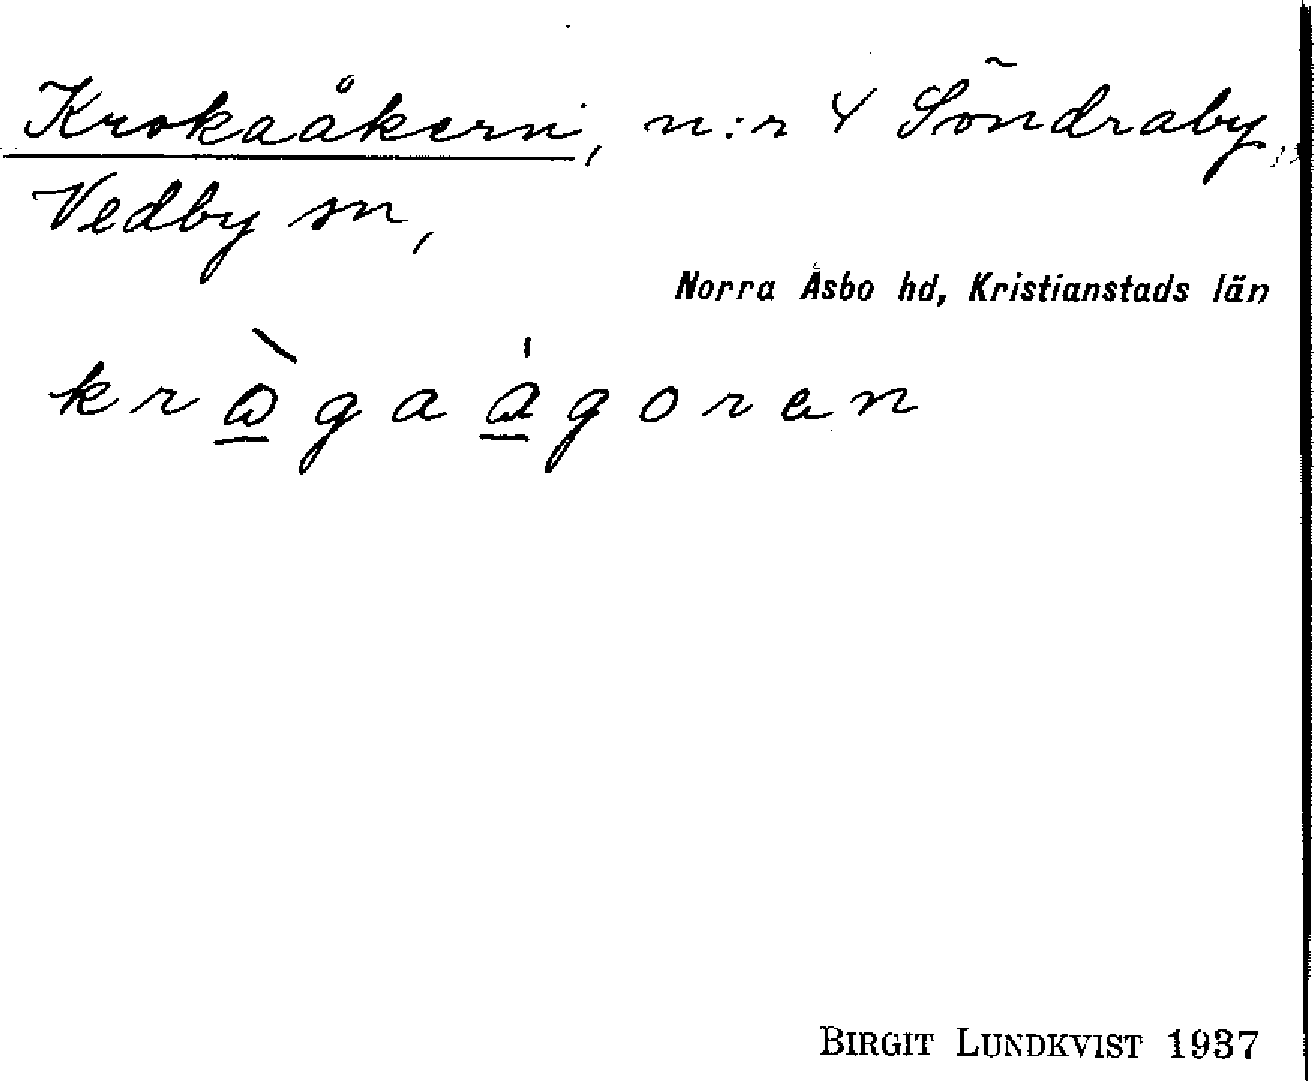 Krokaåkern, n:r 4 Söndraby,
Vedby sn,
Norra Åsbo hd, Kristianstads län
krɷ̀gaágoran
BIRGIT LUNDKVIST 1937